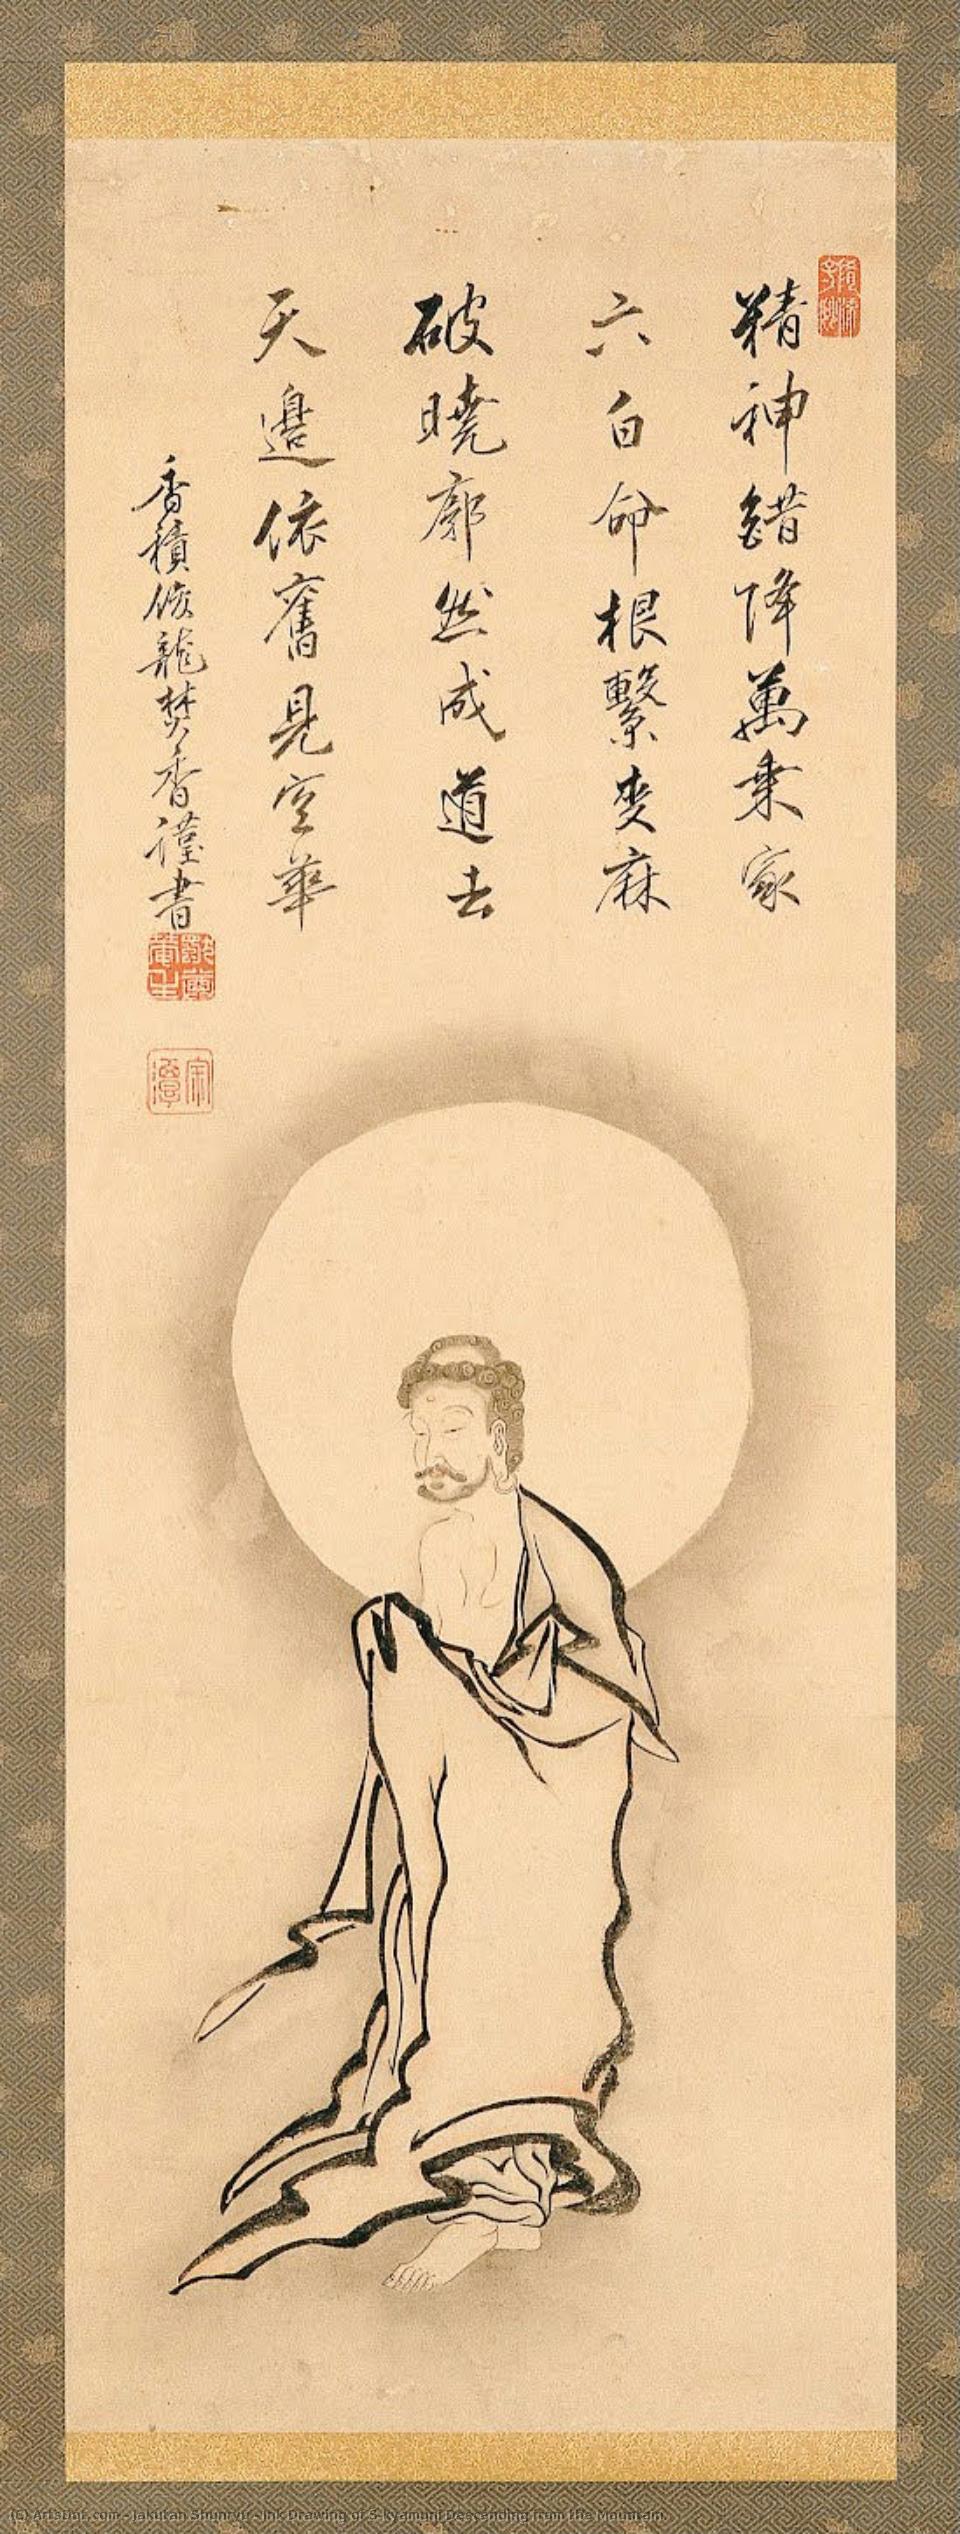 精神錯降萬乗家
六白命根繋麦麻
破曉廓然成道去
天邊依舊見空華
香積俊龍焚香謹書
(C) ArtsDot.com - Jakutan Shunryu - Ink Drawing of S-kyamuni Descending from the Mountain.